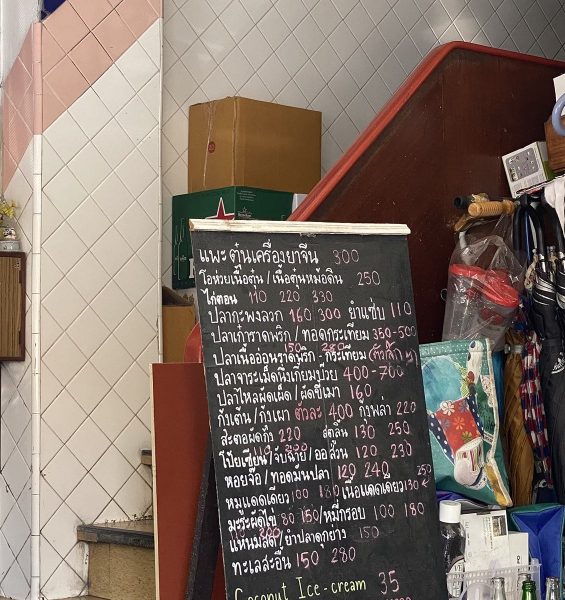 แพะตุ๋นเครื่องยาจีน 300
โอห่วยเนื้อตุ๋น / เนื้อตุ๋นหม้อดิน 250
ไก่ตอน 110 220 330
ปลากะพงลวก 160 300 ยำแซ่บ 110
ปลาเก๋าราดพริก / ทอดกระเทียม 350-500
150 280
ปลาเนื้ออ่อนราดพริก - กระเทียม (ตัวเล็ก
ปลาจาระเม็ดนึ่งเกี้ยมบ๊วย 400-700
ปลาไหลผัดเผ็ด / ผัดขี้เมา 160
กุ้งเต้น / กุ้งเผา ตัวละ 400 กุ้งพล่า 220
สะตอผัดกุ้ง 220 สุกลิ้น 130 250
โป๊ยเซียน / จับฉ่าย / ออส่วน 120 230
หอยจ๊อ / ทอดมันปลา 120 240 250
หมูแดดเดียว 100 180 เนื้อแดดเดียว 130
มะระผัดไข่ 80 150 / หมี่กรอบ 100 180
แหนมสด / ยำปลาดุกย่าง 150
ทะเลสะอื้น 150 280
Coconut Ice-cream 35